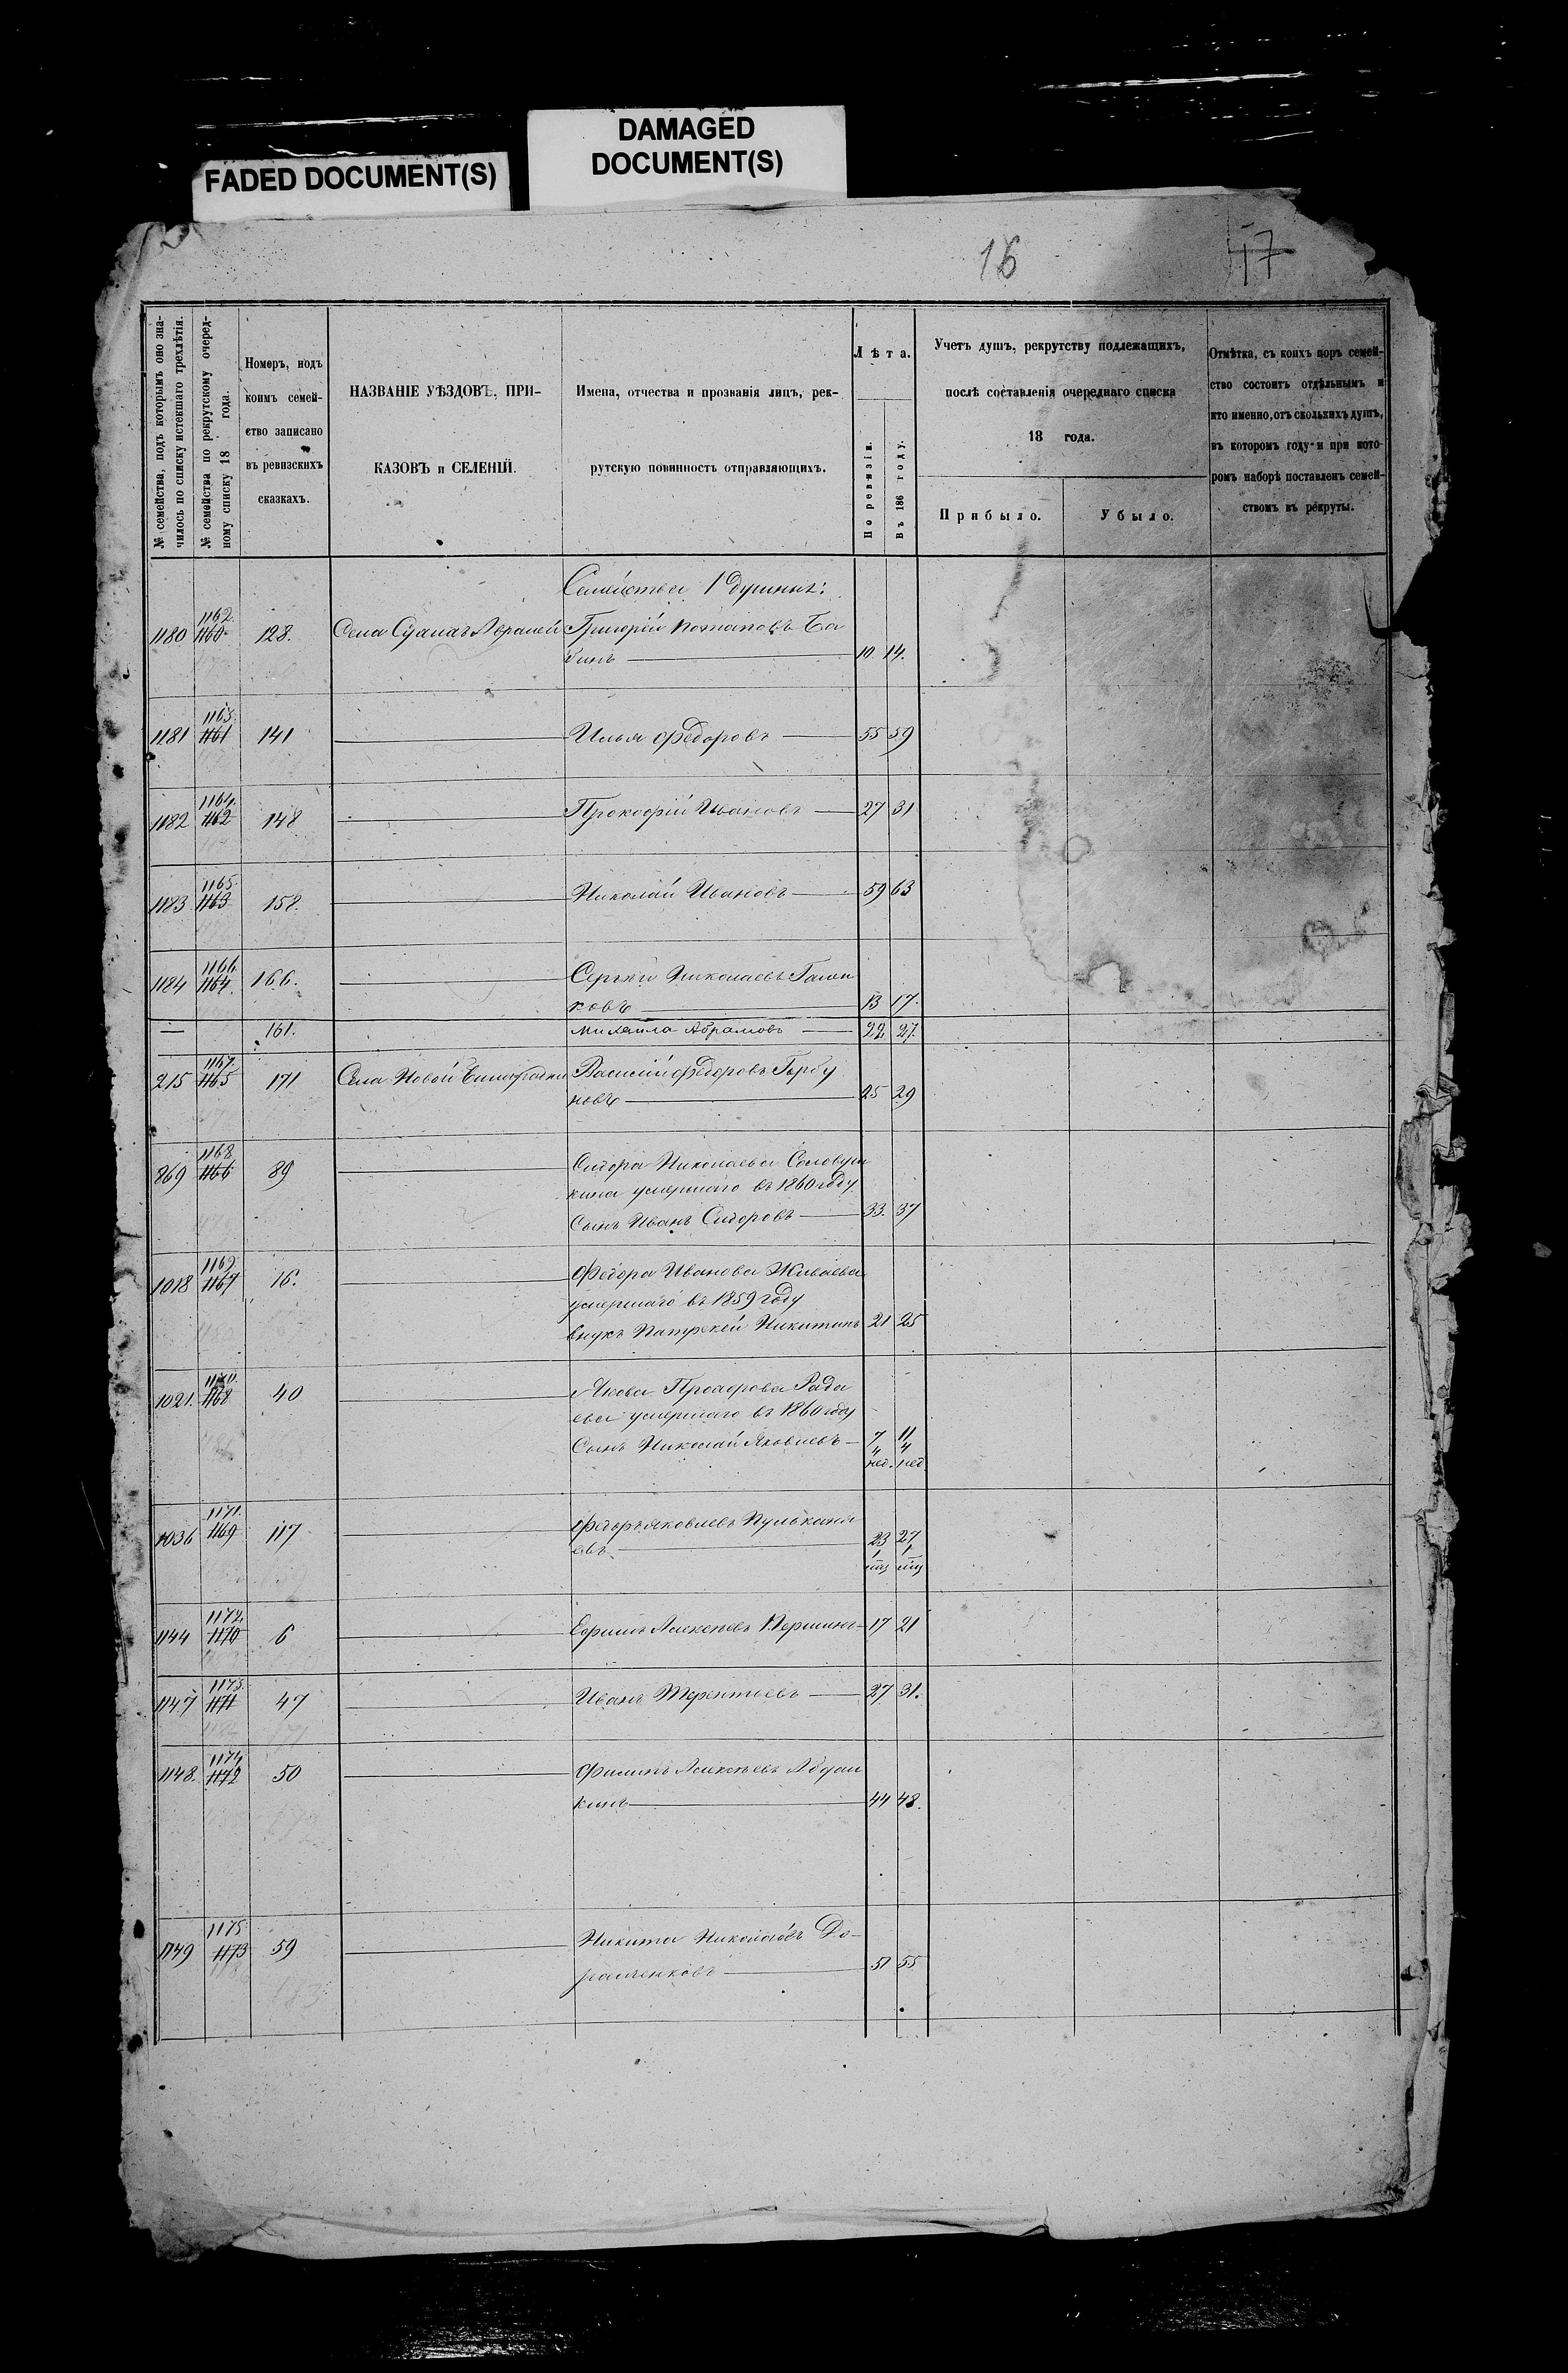 FADED DOCUMENT(S)
DAMAGED
DOCUMENT(S)
16
17
№ семейства, подъ которымъ оно зна-
чилось по списку истекшаго трехлѣтія.
№ семейства по рекрутскому очеред-
ному списку 18 года.
Номеръ, подъ
коимъ семей-
ство записано
въ ревизскихъ
сказкахъ.
НАЗВАНІЕ УѢЗДОВЪ, ПРИ-
КАЗОВЪ и СЕЛЕНІЙ.
Имена, отчества и прозванія лицъ, рек-
рутскую повинность отправляющихъ.
Лѣта.
По ревизіи.
Въ 186 году.
Учетъ душъ, рекрутству подлежащихъ,
послѣ составленія очереднаго списка
18 года.
Прибыло.
Убыло.
Отмѣтка, съ коихъ поръ семей-
ство состоитъ отдѣльнымъ и
кто именно, отъ сколькихъ душъ,
въ которомъ году и при кото-
ромъ наборѣ поставленъ семей-
ствомъ въ рекруты.
Семейства 1 душныя:
1162.
1180 1160 128. Села Григорій Потаповъ Ба
бинъ 10. 14.
1163.
1181 1161 141 Илья Федоровъ 55 59
1164.
1182 1162 148 Прокофій Ивановъ 27 31
1165.
1183 1163 158. Николай Ивановъ 59 63
1166.
1184 1164. 166. Сергѣй Николаевъ
ковъ 13 17.
161. Михайла Абрамовъ 22 27.
1167.
215 1165 171 Села Новой Василій Федоровъ Горбу
новъ 25 29
1168.
869 1166 89 Сидора Николаева Соловуш
кина умершаго въ 1860 году
Сынъ Иванъ Сидоровъ 33. 37
1169.
1018 1167 16. Федора Иванова Живаева
умершаго въ 1859 году
внукъ Патрекей Никитинъ 21 25
1170.
1021. 1168 40 Якова Прохорова Рада
ева умершаго въ 1860 году
Сынъ Николай Яковлевъ 7 11
4 4
нед. нед
1171.
1036 1169 117 Федоръ Яковлевъ
евъ 23 27
1 1
мц мц
1172.
1144 1170 6 Ефимъ Алексѣевъ Першинъ 17 21
1173.
1147 1171 47 Иванъ Терентьевъ 27 31.
1174.
1148. 1172 50 Филипъ Алексѣевъ Абдаш
кинъ 44 48.
1175.
1149 1173 59 Никита Николаевъ До-
51 55